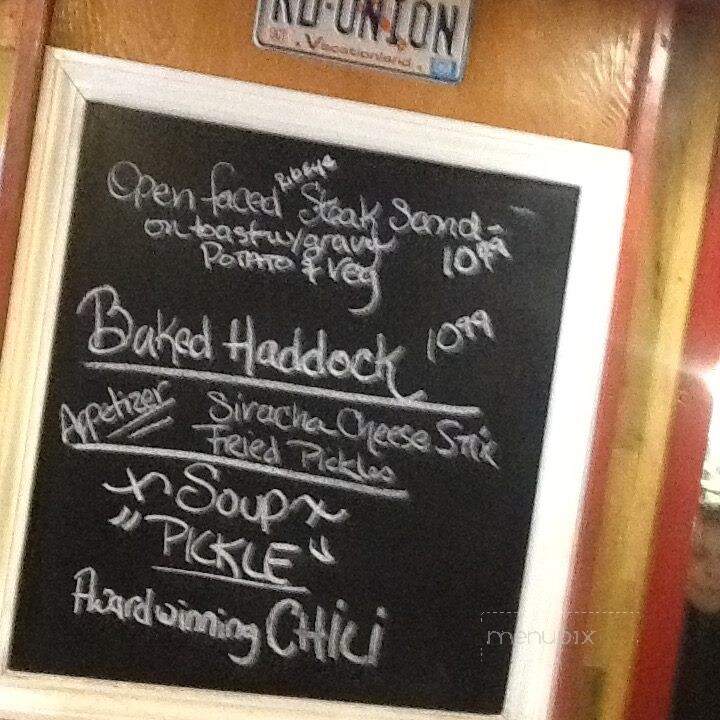 RD·UNION
Vacationland
Ribeye
Open faced Steak Sand-
on toast w/gravy
POTATO & veg 10.99
Baked Haddock 10.99
Appetizer Siracha Cheese Stix
Fried Pickles
Soup
"PICKLE"
Award winning CHILI
menupix